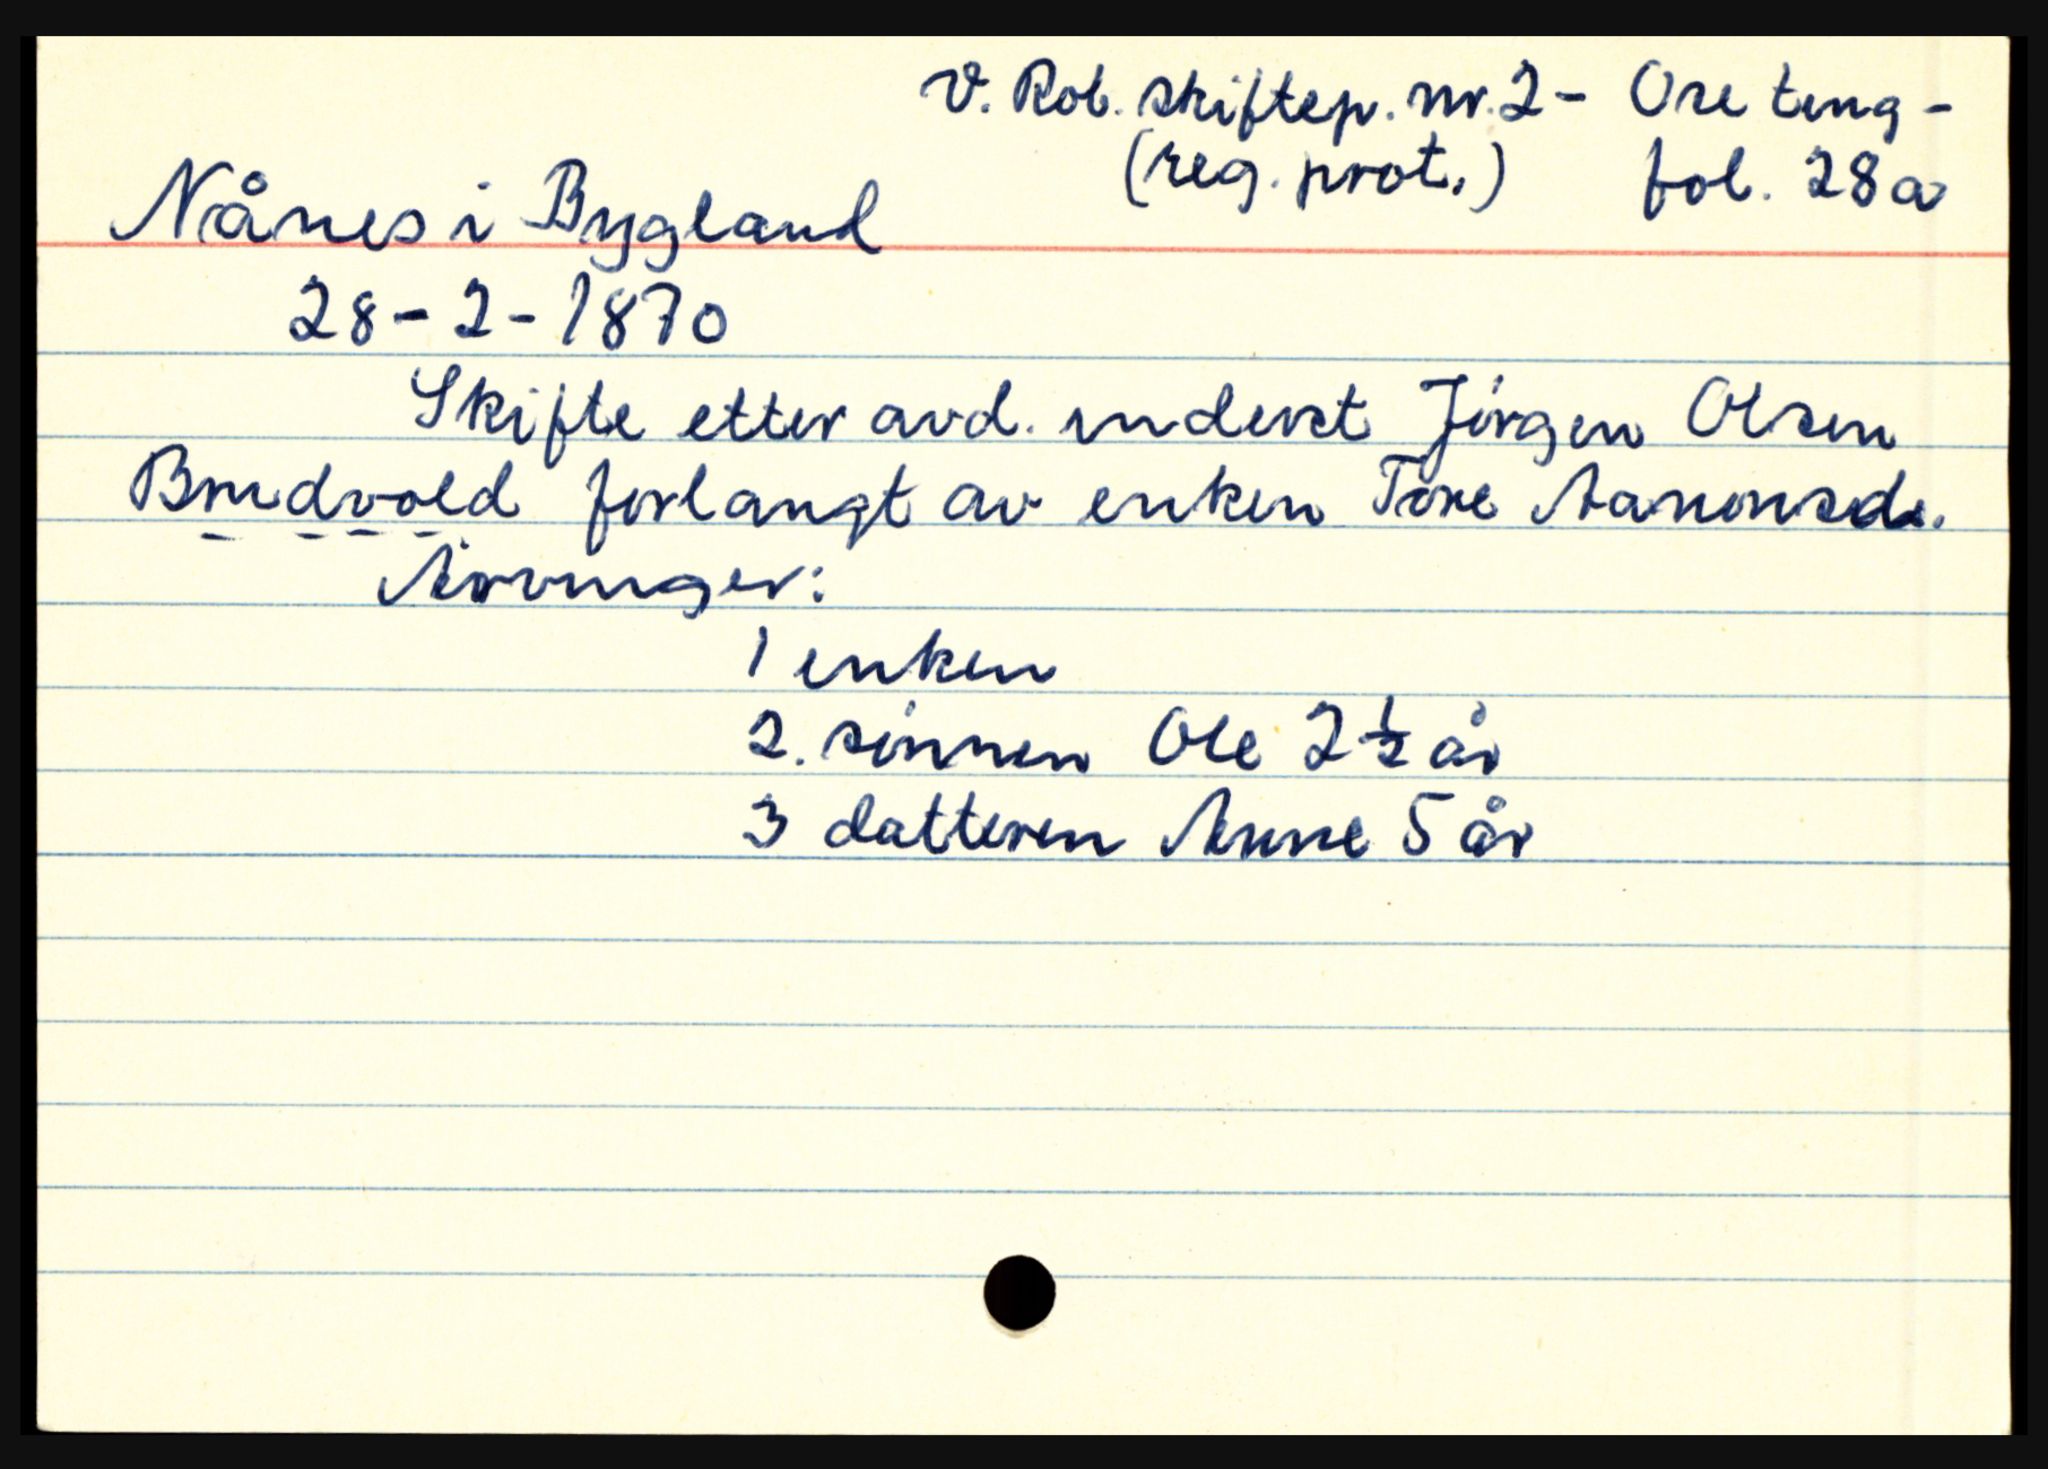 V. Rob. skiftep. nr. 2 - Ose ting -
(reg. prot.) fol. 28a
Nånes i Bygland
28 - 2 - 1870
Skifte etter avd. inderst Jörgen Olsen
Brudvold forlangt av enken Tore Aanonsd.
Arvinger:
1 enken
2. sönnen Ole 2 1/2 år
3 datteren Anne 5 år